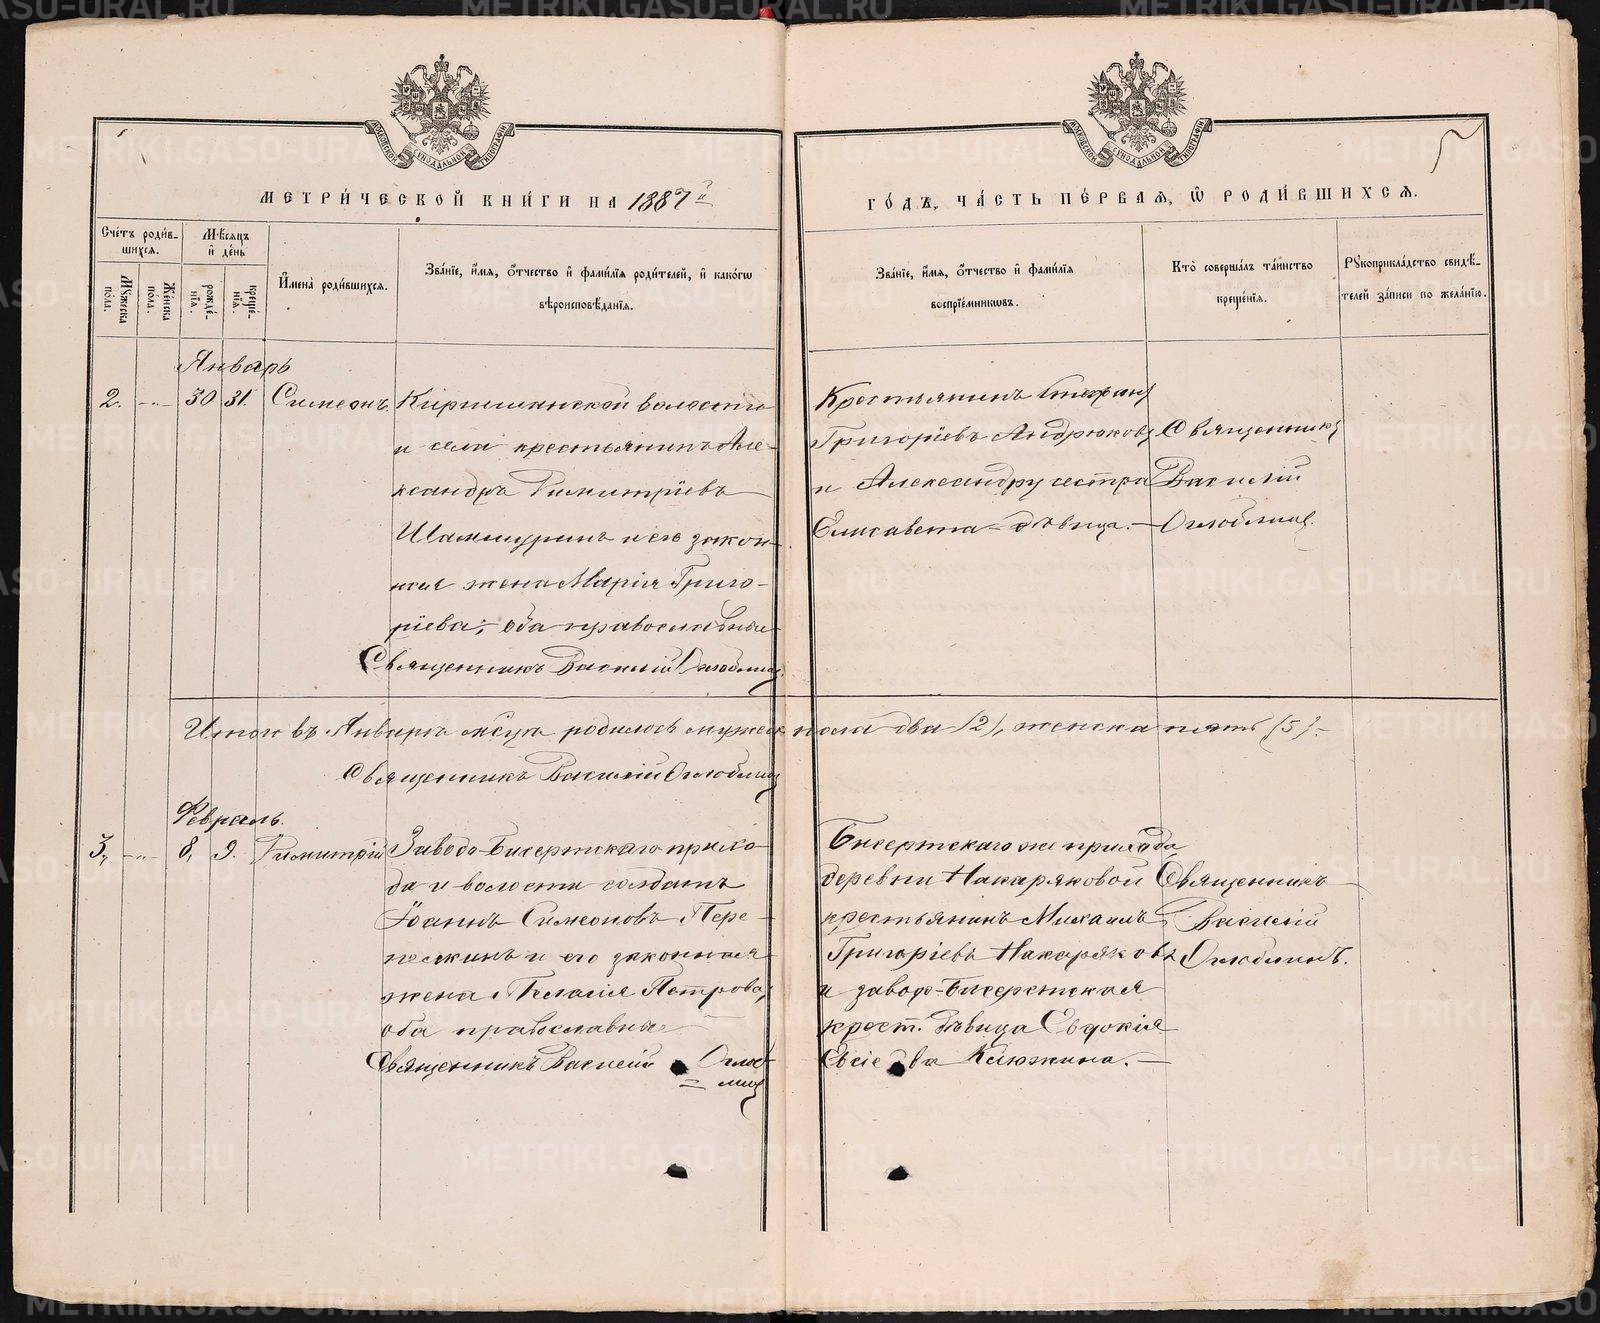 МЕТРИЧЕСКОЙ КНИГИ НА 1887й
ГОДЪ, ЧАСТЬ ПЕРВАЯ, Ѡ РОДИВШИХСЯ.
Счетъ родившихся.
Мѣсяцъ и день
Имена родившихся.
Званіе, имя, отчество и фамилія родителей, и какогѡ вѣроисповѣданія.
Званіе, имя, отчество и фамилія воспріемникѡвъ.
Кто совершалъ таинство крещенія.
Рукоприкладство свидѣтелей записи по желанію.
Мужеска пола.
Женска пола.
рожденія.
крещенія.
Январь
2. 30 31. Симеонъ
Киргишанской волости
и села крестьянинъ Але-
ксандръ Димитріевъ
Шамшуринъ и его закон-
ная жена Марія Григо-
ріева; оба православные
Священникъ Василій
Крестьянинъ Стефанъ
Григоріевъ Андрюковъ
и Александру сестра
Елисавета дѣвица.
Священникъ
Василій
Итого въ Январѣ мсцѣ родилось мужеск. пола два (2), женска пять (5).
Священникъ Василій
Февраль.
3. 8. 9. Димитрій
Заводо-Бисертскаго прихо-
да и волости солдатъ
Іоаннъ Симеоновъ Пере-
пелкинъ и его законная
жена Пелагія Петрова,
оба православные
Священникъ Василій
Бисертскаго же прихода
деревни Накаряковой
крестьянинъ Михаилъ
Григоріевъ Накаряковъ
и заводо-Бисертская
крест. дѣвица Евдокія
Священникъ
Василій
METRIKI.GASO-URAL.RU